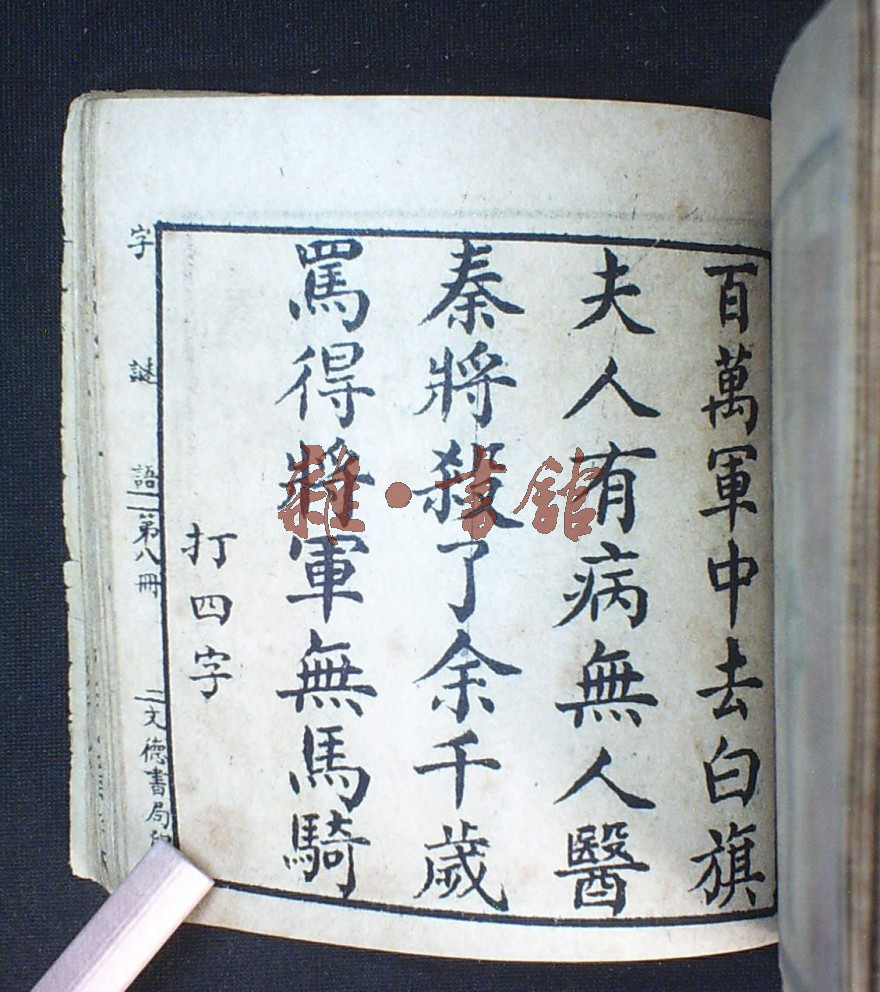 百萬軍中去白旗
夫人有病無人醫
秦將殺了余千歲
罵得將軍無馬騎
打四字
字謎語 第八冊 文德書局
雜·書館